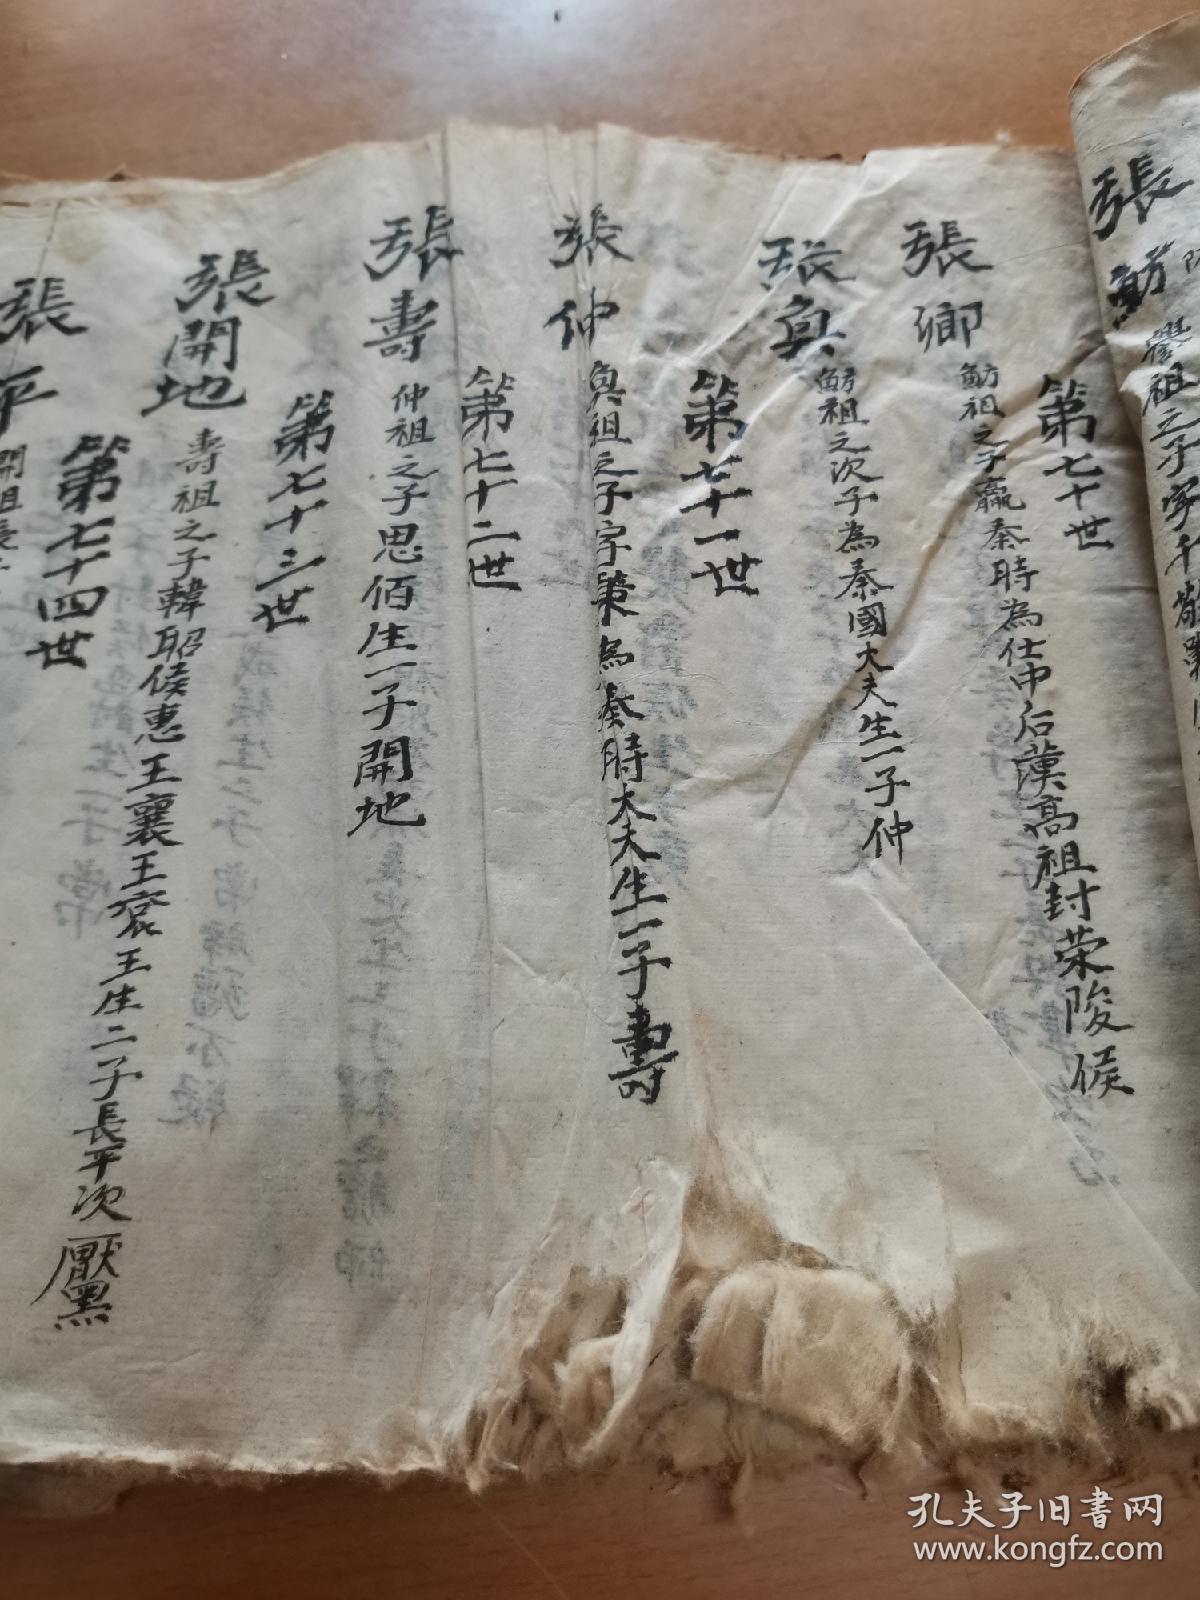 張魴
譽祖之子字
第七十世
張卿
魴祖之子嬴秦時為仕中后漢高祖封荣陵侯
張奐
魴祖之次子為秦國大夫生一子仲
第七十一世
張仲
奐祖之子字第為秦時大夫生一子壽
第七十二世
張壽
仲祖之子思佰生一子開地
第七十三世
張開地
壽祖之子韓昭侯惠王襄王襄王生二子長平次厭黑
第七十四世
張平
開祖長
孔夫子旧书网
www.kongfz.com